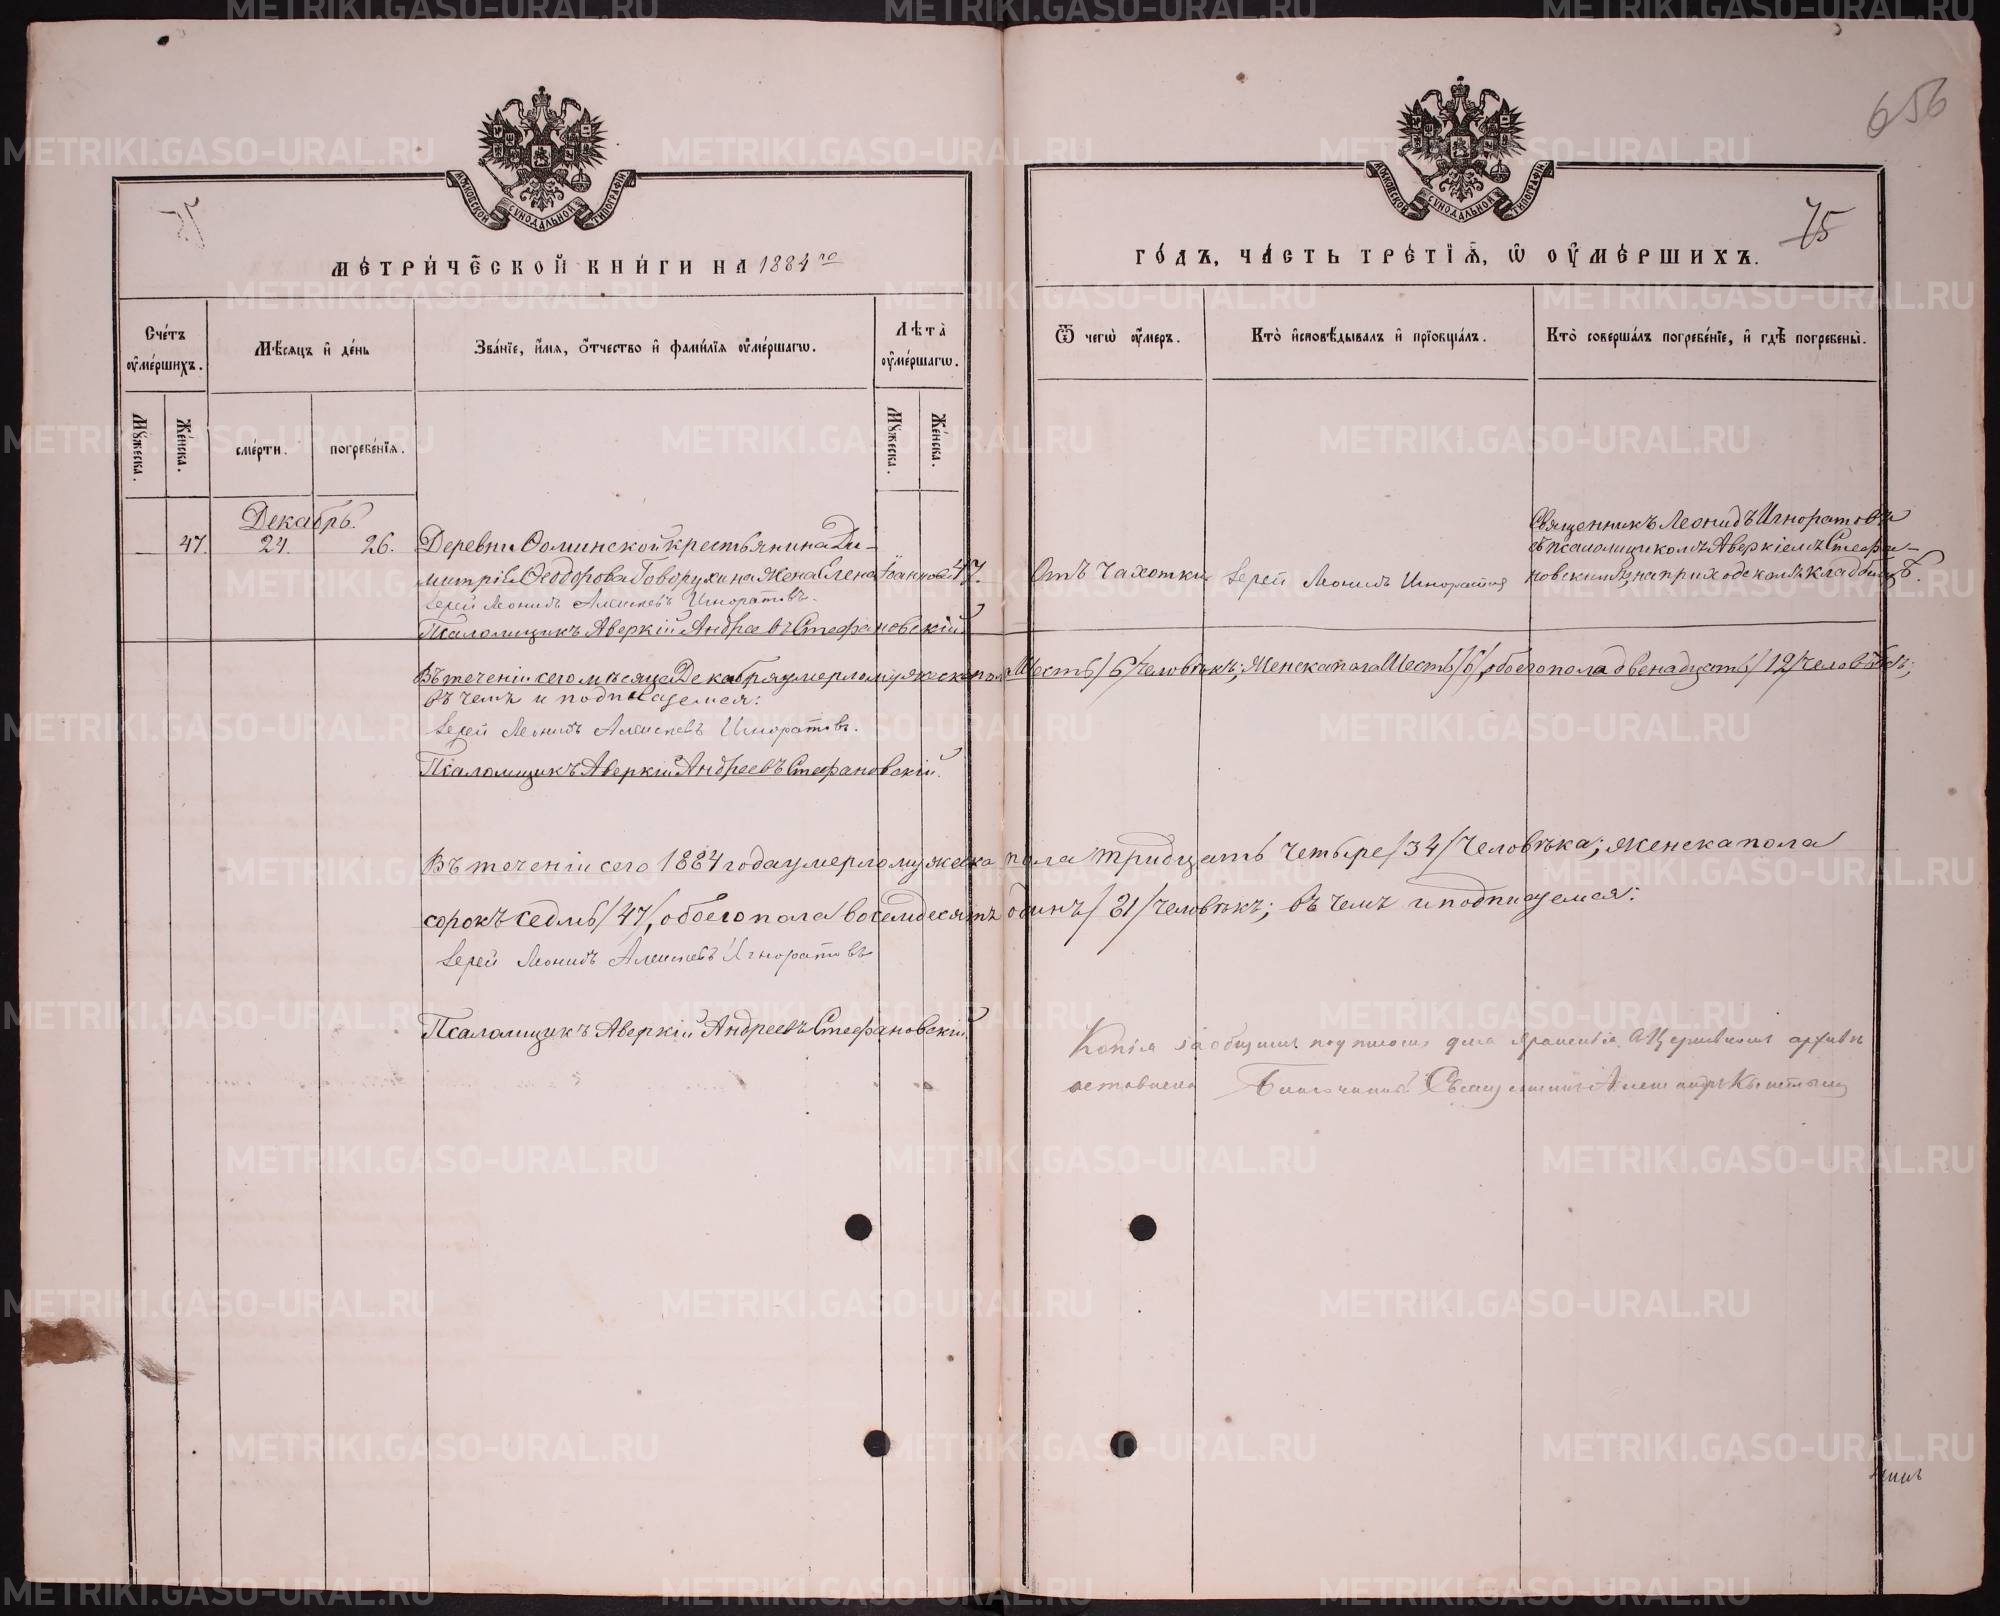 656
75
МОСКОВСКОЙ СѴНОДАЛЬНОЙ ТИПОГРАФІИ
МОСКОВСКОЙ СѴНОДАЛЬНОЙ ТИПОГРАФІИ
МЕТРИЧЕСКОЙ КНИГИ НА 1884 го
ГОДЪ, ЧАСТЬ ТРЕТІЯ, Ѡ ОУМЕРШИХЪ.
Счетъ оумершихъ.
Мѣсяцъ и день
Званіе, имя, отчество и фамилія оумершагѡ.
Лѣта оумершагѡ.
Ѿ чегѡ оумеръ.
Кто исповѣдывалъ и пріобщалъ.
Кто совершалъ погребеніе, и гдѣ погребены.
Мужеска.
Женска.
смерти.
погребенія.
Мужеска.
Женска.
Декабрь.
— 47. 24. 26. Деревни Ѳоминской крестьянина Ди-
митрія Ѳеодорова Говорухина жена Елена Іоаннова 47.
Отъ чахотки
Іерей Леонидъ Игноратовъ
Священникъ Леонидъ Игноратовъ
съ псаломщикомъ Аверкіемъ Стефа-
новскимъ, на приходскомъ кладбищѣ.
Іерей Леонидъ Алексѣевъ Игноратовъ.
Псаломщикъ Аверкій Андреевъ Стефановскій
Въ теченіи сего мѣсяца Декабря умерло мужеска пола шесть /6/ человѣкъ; женска пола шесть /6/, обоего пола двенадцать /12/ человѣкъ;
въ чемъ и подписуемся:
Іерей Леонидъ Алексѣевъ Игноратовъ.
Псаломщикъ Аверкій Андреевъ Стефановскій.
Въ теченіи сего 1884 года умерло мужеска пола тридцать четыре /34/ человѣка; женска пола
сорокъ седмь /47/, обоего пола восемдесятъ одинъ /81/ человѣкъ; въ чемъ и подписуемся:
Іерей Леонидъ Алексѣевъ Игноратовъ
Псаломщикъ Аверкій Андреевъ Стефановскій.
Копія за общимъ подписомъ для храненія въ Церковномъ архивѣ
оставлена Благочинный Священникъ Александръ
METRIKI.GASO-URAL.RU